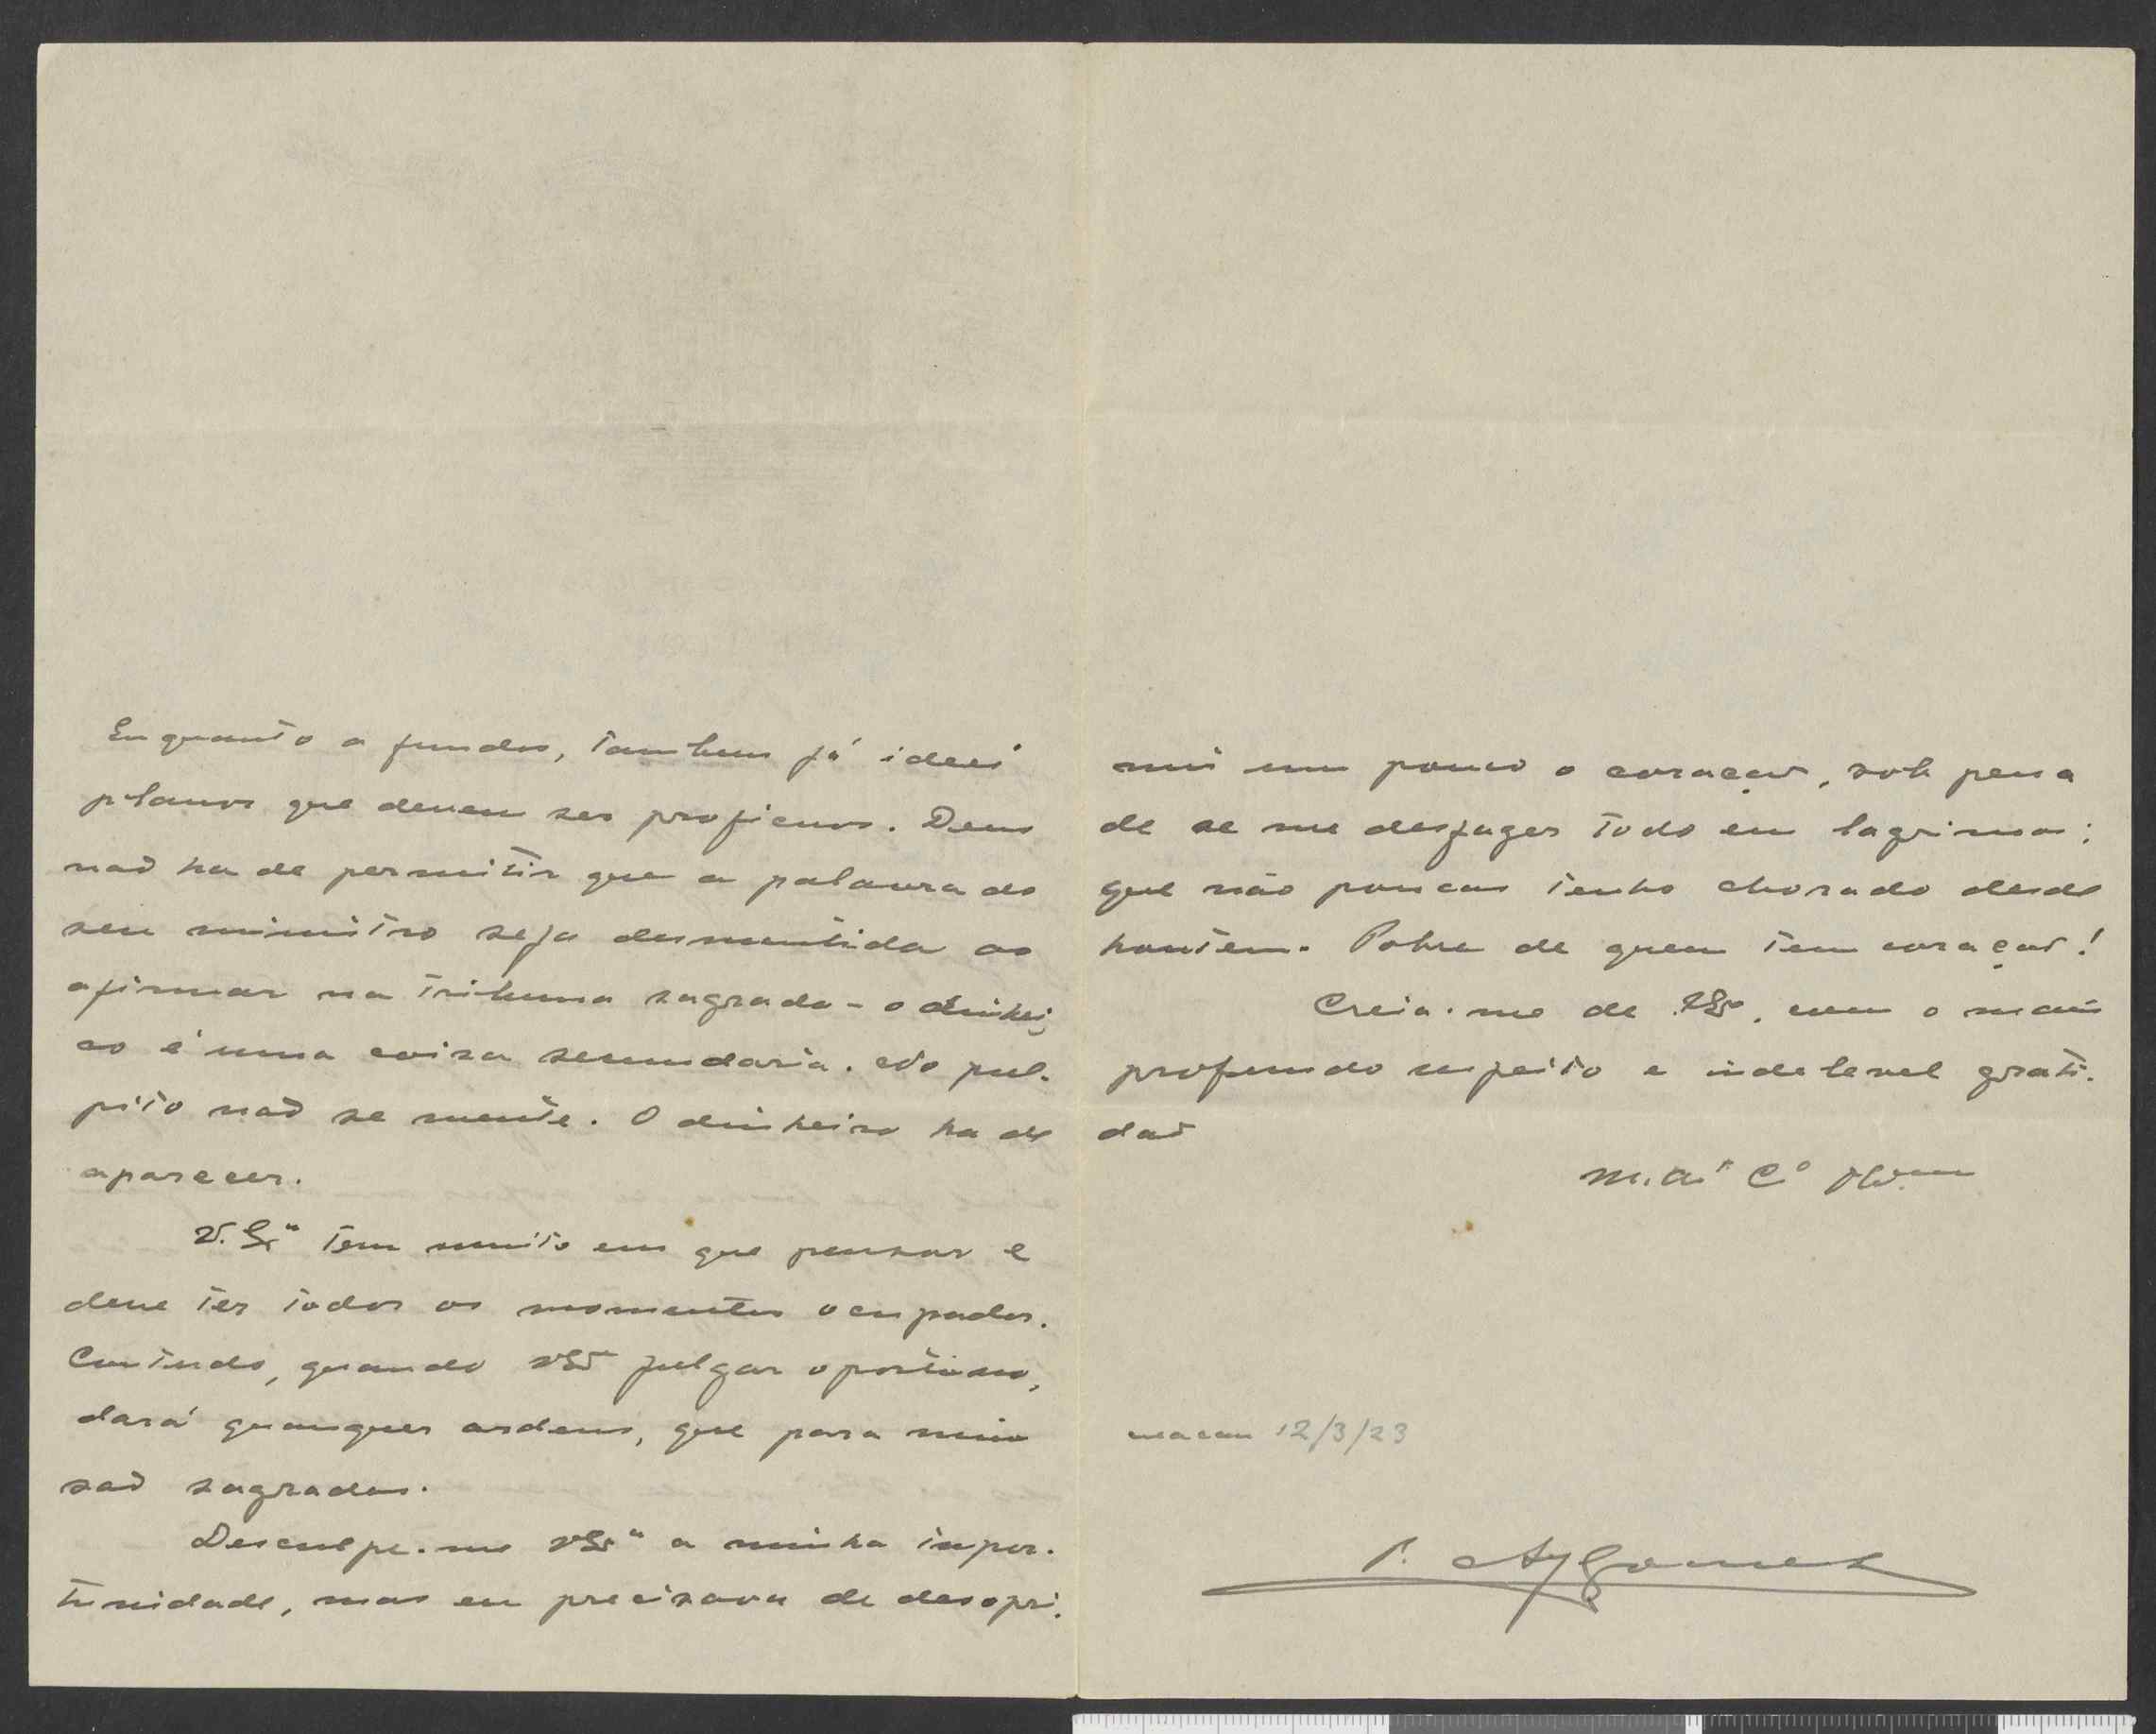 Enquanto a fundos, tambem já ideei
planos que devem ser proficuos. Deus
naõ ha de permitir que a palavra do
seu ministro seja desmentida ao
afirmar na tribuna sagrada - o dinhei
ro é uma coisa secundaria. No pul-
pito naõ se mente. O dinheiro ha de
aparecer.
V. Exª tem muito em que pensar e
deve ter todos os momentos ocupados.
Contudo, quando VExª julgar oportuno,
dará quaisquer ordens, que para mim
saõ sagradas.
Desculpe-me VExª a minha impor-
tunidade, mas eu precisava de desopri-
mir um pouco o coraçaõ, sob pena
de se me desfazer todo em lagrimas;
que não poucas tenho chorado desde
hontem. Pobre de quem tem coraçaõ!
Creia-me de VExª, com o mais
profundo respeito e indelevel grati-
daõ
M. Cº
Macau 12/3/23
P. Gomes